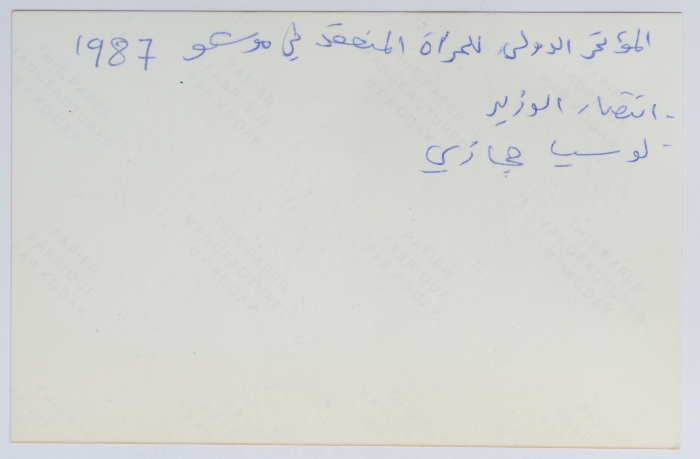 المؤتمر الدولي للمرأة المنعقد في موسكو 1987
- انتصار الوزير
- لوسيا حجازي
THIS PAPER
MANUFACTURED
BY KODAK
PAPIER
FABRIQUE
PAR KODAK